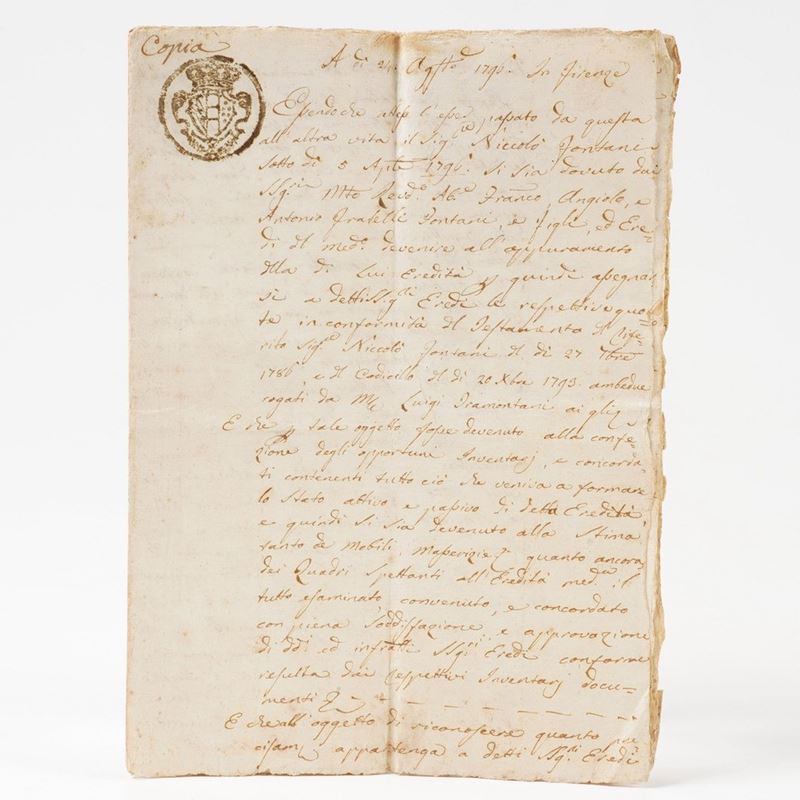 Copia
A dì 24. Agsto 1796. In Firenze
Essendo che alla passato da questa
all'altra vita il Sigre Niccolò Fontani
sotto dì 5 Aple 1796. si sia dovuto dai
SSgri Mto Revdo Abe Franco, Angiolo, e
Antonio Fratelli Fontani, e figli, ed Ere-
di dl medo devenire all'appuramento
dlla di Lui Eredità, e quindi assegnar
si a detti SSgri Eredi le respettive quo-
te in conformità dl Testamento dl Rife-
rito Sigre Niccolò Fontani dl dì 27 7bre
1786, e dl Codicilo dl dì 20 Xbre 1793. ambedue
rogati da Mr Luigi Tramontani
E che p tale oggetto fosse devenuto alla confe-
zione degli opportuni Inventarj, e concorda-
ti contenenti tutto ciò che veniva a formare
lo Stato attivo e passivo di detta Eredità,
e quindi si sia devenuto alla Stima
tanto de Mobili, Masserizie quanto ancora
dei Quadri spettanti all'Eredità meda il
tutto esaminato, convenuto, e concordato
con piena soddisfazione, e approvazione
di ddi ed infratti SSgri Eredi conforme
resulta dai respettivi Inventarj docu-
menti
E che all'oggetto di riconoscere quanto pre
cisamte appartenga a detti SSgri Eredi